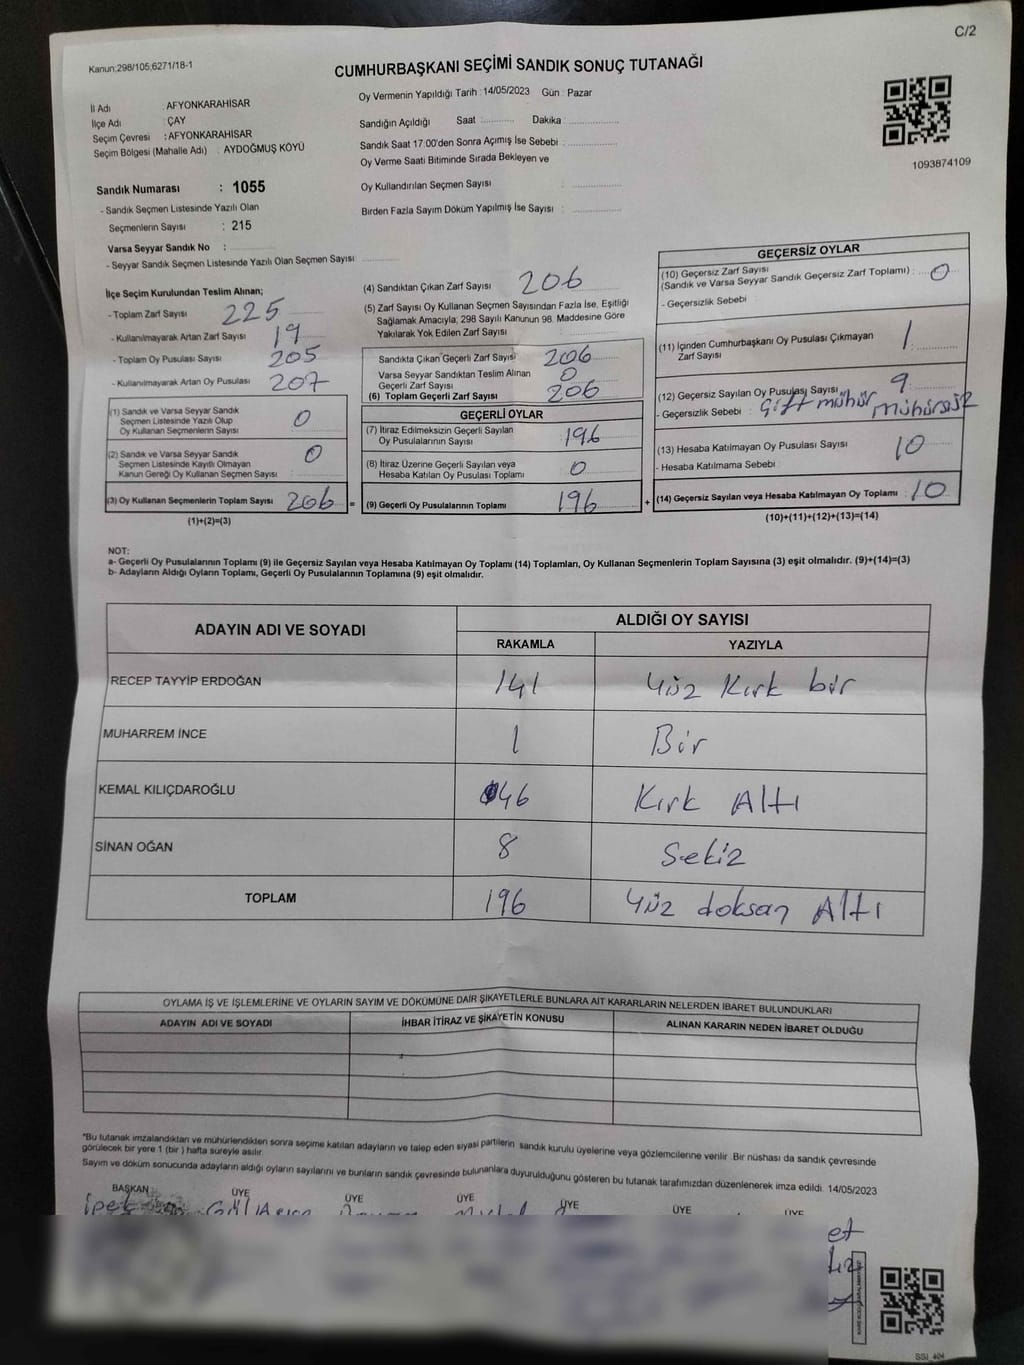 C/2
Kanun:298/105;6271/18-1
CUMHURBAŞKANI SEÇİMİ SANDIK SONUÇ TUTANAĞI
İl Adı : AFYONKARAHİSAR
İlçe Adı : ÇAY
Seçim Çevresi : AFYONKARAHİSAR
Seçim Bölgesi (Mahalle Adı) : AYDOĞMUŞ KÖYÜ
Sandık Numarası : 1055
- Sandık Seçmen Listesinde Yazılı Olan
Seçmenlerin Sayısı : 215
Varsa Seyyar Sandık No :
- Seyyar Sandık Seçmen Listesinde Yazılı Olan Seçmen Sayısı :
Oy Vermenin Yapıldığı Tarih : 14/05/2023 Gün : Pazar
Sandığın Açıldığı Saat : Dakika :
Sandık Saat 17:00'den Sonra Açımış İse Sebebi :
Oy Verme Saati Bitiminde Sırada Bekleyen ve
Oy Kullandırılan Seçmen Sayısı :
Birden Fazla Sayım Döküm Yapılmış İse Sayısı :
1093874109
İlçe Seçim Kurulundan Teslim Alınan;
- Toplam Zarf Sayısı : 225
- Kullanılmayarak Artan Zarf Sayısı : 19
- Toplam Oy Pusulası Sayısı : 205
- Kullanılmayarak Artan Oy Pusulası : 207
(1) Sandık ve Varsa Seyyar Sandık
Seçmen Listesinde Yazılı Olup
Oy Kullanan Seçmenlerin Sayısı : 0
(2) Sandık ve Varsa Seyyar Sandık
Seçmen Listesinde Kayıtlı Olmayan
Kanun Gereği Oy Kullanan Seçmen Sayısı : 0
(3) Oy Kullanan Seçmenlerin Toplam Sayısı : 206 =
(1)+(2)=(3)
(4) Sandıktan Çıkan Zarf Sayısı : 206
(5) Zarf Sayısı Oy Kullanan Seçmen Sayısından Fazla İse, Eşitliği
Sağlamak Amacıyla; 298 Sayılı Kanunun 98. Maddesine Göre
Yakılarak Yok Edilen Zarf Sayısı :
Sandıkta Çıkan Geçerli Zarf Sayısı : 206
Varsa Seyyar Sandıktan Teslim Alınan
Geçerli Zarf Sayısı : 0
(6) Toplam Geçerli Zarf Sayısı : 206
GEÇERLİ OYLAR
(7) İtiraz Edilmeksizin Geçerli Sayılan
Oy Pusulalarının Sayısı : 196
(8) İtiraz Üzerine Geçerli Sayılan veya
Hesaba Katılan Oy Pusulası Toplamı : 0
(9) Geçerli Oy Pusulalarının Toplamı : 196 +
GEÇERSİZ OYLAR
(10) Geçersiz Zarf Sayısı
(Sandık ve Varsa Seyyar Sandık Geçersiz Zarf Toplamı) : 0
- Geçersizlik Sebebi :
(11) İçinden Cumhurbaşkanı Oy Pusulası Çıkmayan
Zarf Sayısı : 1
(12) Geçersiz Sayılan Oy Pusulası Sayısı : 9
- Geçersizlik Sebebi : Çift mühür mühürsüz
(13) Hesaba Katılmayan Oy Pusulası Sayısı : 10
- Hesaba Katılmama Sebebi :
(14) Geçersiz Sayılan veya Hesaba Katılmayan Oy Toplamı : 10
(10)+(11)+(12)+(13)=(14)
NOT:
a- Geçerli Oy Pusulalarının Toplamı (9) ile Geçersiz Sayılan veya Hesaba Katılmayan Oy Toplamı (14) Toplamları, Oy Kullanan Seçmenlerin Toplam Sayısına (3) eşit olmalıdır. (9)+(14)=(3)
b- Adayların Aldığı Oyların Toplamı, Geçerli Oy Pusulalarının Toplamına (9) eşit olmalıdır.
ADAYIN ADI VE SOYADI ALDIĞI OY SAYISI
RAKAMLA YAZIYLA
RECEP TAYYİP ERDOĞAN 141 Yüz Kırk bir
MUHARREM İNCE 1 Bir
KEMAL KILIÇDAROĞLU 46 Kırk Altı
SİNAN OĞAN 8 Sekiz
TOPLAM 196 Yüz doksan Altı
OYLAMA İŞ VE İŞLEMLERİNE VE OYLARIN SAYIM VE DÖKÜMÜNE DAİR ŞİKAYETLERLE BUNLARA AİT KARARLARIN NELERDEN İBARET BULUNDUKLARI
ADAYIN ADI VE SOYADI İHBAR İTİRAZ VE ŞİKAYETİN KONUSU ALINAN KARARIN NEDEN İBARET OLDUĞU
*Bu tutanak imzalandıktan ve mühürlendikten sonra seçime katılan adayların ve talep eden siyasi partilerin sandık kurulu üyelerine veya gözlemcilerine verilir. Bir nüshası da sandık çevresinde
görülecek bir yere 1 (bir) hafta süreyle asılır.
Sayım ve döküm sonucunda adayların aldığı oyların sayılarını ve bunların sandık çevresinde bulunanlara duyurulduğunu gösteren bu tutanak tarafımızdan düzenlenerek imza edildi. 14/05/2023
BAŞKAN ÜYE ÜYE ÜYE ÜYE ÜYE ÜYE
İpek